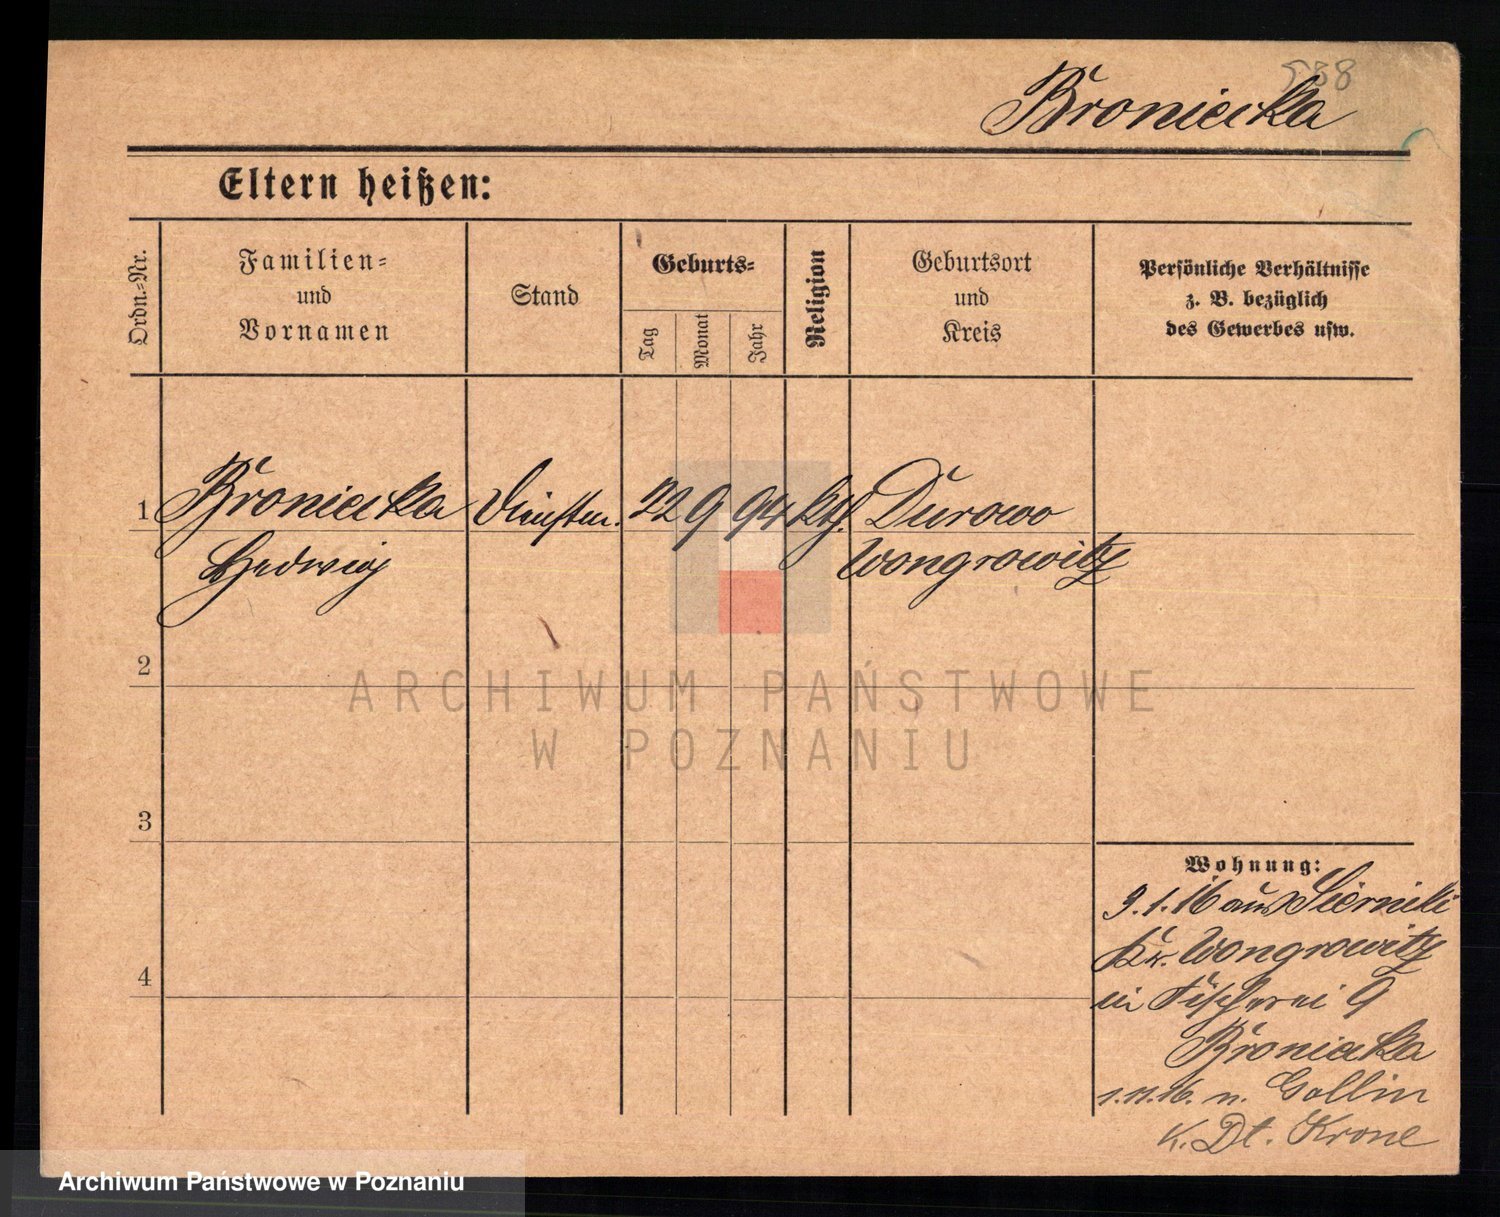 588
Broniecka
Eltern heißen:
Ordn.-Nr.
Familien-
und
Vornamen
Stand
Geburts-
Tag
Monat
Jahr
Religion
Geburtsort
und
Kreis
Persönliche Verhältnisse
z. B. bezüglich
des Gewerbes usw.
1 Broniecka Dienstm. 22 9 94 kth. Durowo
Hedwig Wongrowitz
2
3
4
Wohnung:
9.1.16 aus Siernicki
Kr. Wongrowitz
in Fischerei 9
Broniecka
1.11.16. n. Gollin
K. Dt. Krone
ARCHIWUM PAŃSTWOWE
W POZNANIU
Archiwum Państwowe w Poznaniu